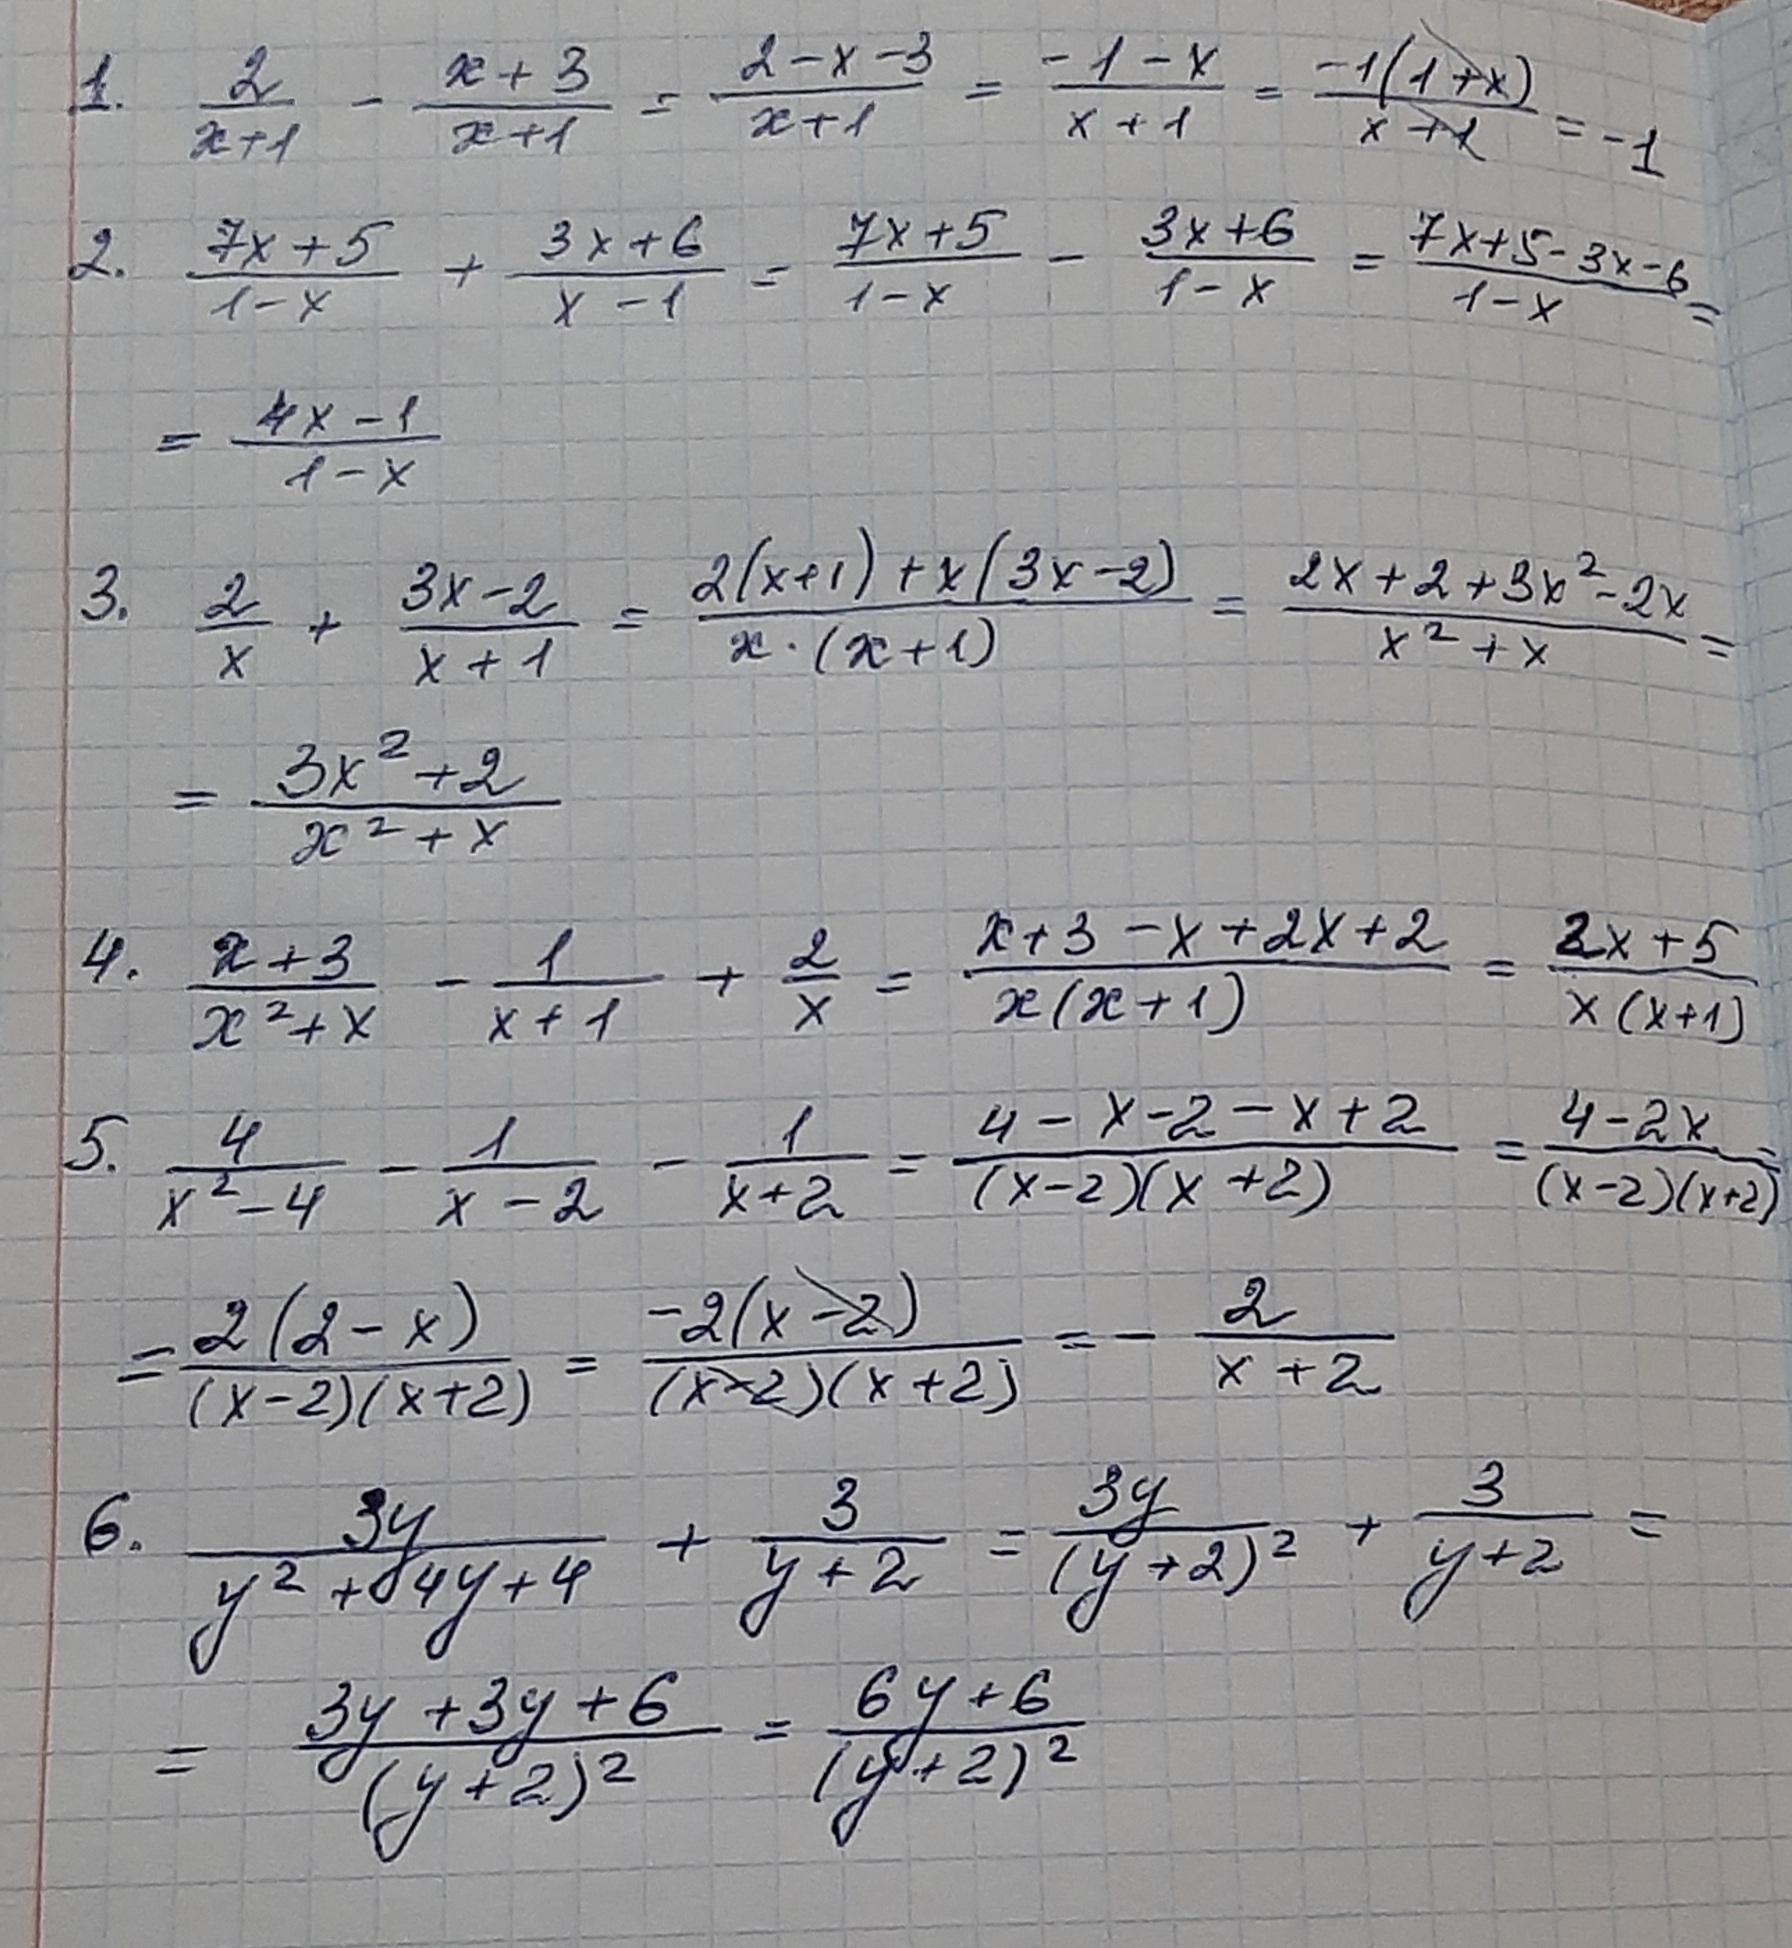 1. 2/(x+1) - (x+3)/(x+1) = (2-x-3)/(x+1) = (-1-x)/(x+1) = (-1(1+x))/(x+1) = -1
2. (7x+5)/(1-x) + (3x+6)/(x-1) = (7x+5)/(1-x) - (3x+6)/(1-x) = (7x+5-3x-6)/(1-x) =
= (4x-1)/(1-x)
3. 2/x + (3x-2)/(x+1) = (2(x+1)+x(3x-2))/(x·(x+1)) = (2x+2+3x²-2x)/(x²+x) =
= (3x²+2)/(x²+x)
4. (x+3)/(x²+x) - 1/(x+1) + 2/x = (x+3-x+2x+2)/(x(x+1)) = (2x+5)/(x(x+1))
5. 4/(x²-4) - 1/(x-2) - 1/(x+2) = (4-x-2-x+2)/((x-2)(x+2)) = (4-2x)/((x-2)(x+2)) =
= (2(2-x))/((x-2)(x+2)) = (-2(x-2))/((x-2)(x+2)) = - 2/(x+2)
6. 3y/(y²+4y+4) + 3/(y+2) = 3y/(y+2)² + 3/(y+2) =
= (3y+3y+6)/(y+2)² = (6y+6)/(y+2)²